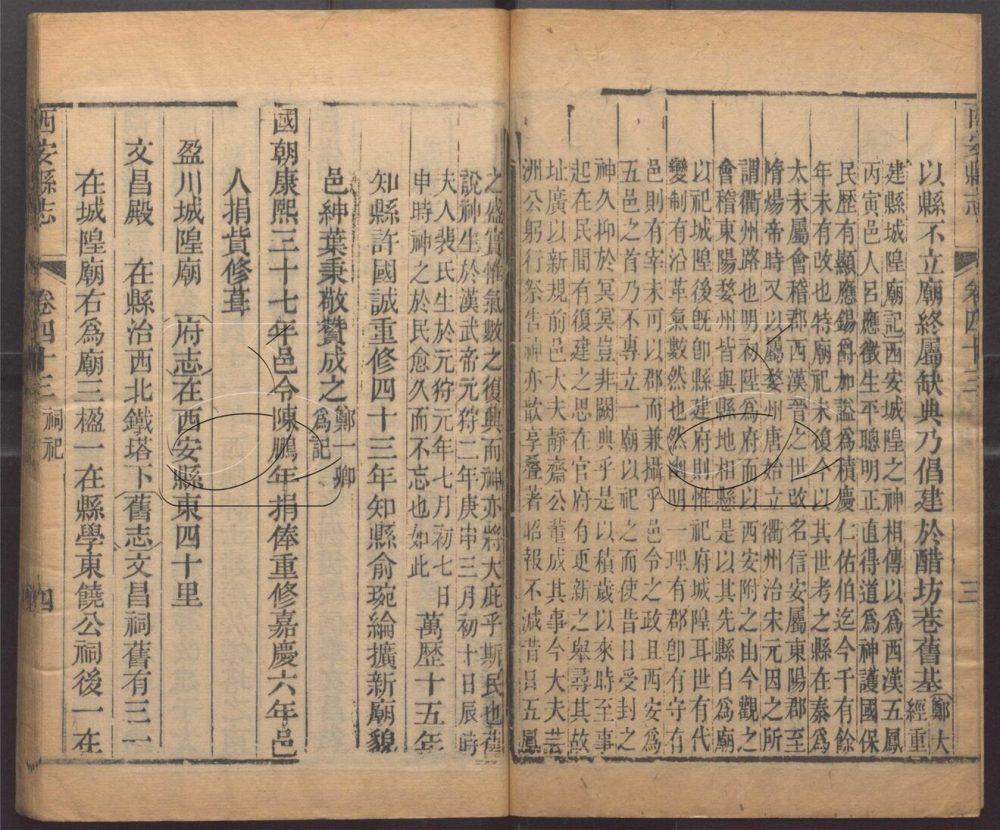 西安縣志 卷四十三 三
以縣不立廟終屬缺典乃倡建於醋坊巷舊基鄭大
經重
建縣城隍廟記西安城隍之神相傳以爲西漢五鳳
丙寅邑人呂應徵生平聰明正直得道爲神護國保
民歷有顯應錫爵加謚爲積慶仁佑伯迄今千有餘
年未有改也特廟祀未復今以其世考之縣在秦爲
太末屬會稽郡西漢晉之世改名信安屬東陽郡至
隋煬帝時又以屬婺州唐始立衢州治宋元因之所
謂衢州路也明初陞爲府而以西安附之由今觀之
會稽東陽婺州皆與此地相懸是以其先縣自爲廟
以祀城隍後旣卽縣建府則惟祀府城隍耳世有代
變制有沿革氣數然也然幽明一理有郡卽有守有
邑則有宰未可以郡而兼攝乎邑令之政且西安爲
五邑之首乃不專立一廟以祀之而使昔日受封之
神久抑於冥冥豈非闕典乎是以積歲以來時至事
起在民間有復建之思在官府有更新之舉尋其故
址廣以新規前邑大夫靜齋公董成其事今大夫芸
洲公躬行祭告神亦歆享疊者昭報不減昔日五鳳
之盛實惟氣數之復興而神亦將大庇乎斯民也舊
說神生於漢武帝元狩二年庚申三月初十日辰時
夫人裴氏生於元狩元年七月初七日
申時神之於民愈久而不忘也如此 萬歷十五年
知縣許國誠重修四十三年知縣俞琬綸擴新廟貌
邑紳葉秉敬贊成之鄭一卿
爲記
國朝康熙三十七年邑令陳鵬年捐俸重修嘉慶六年邑
人捐貲修葺
盈川城隍廟 府志在西安縣東四十里
文昌殿 在縣治西北鐵塔下舊志文昌祠舊有三一
在城隍廟右爲廟三楹一在縣學東饒公祠後一在
西安縣志 卷四十三 祠祀 四